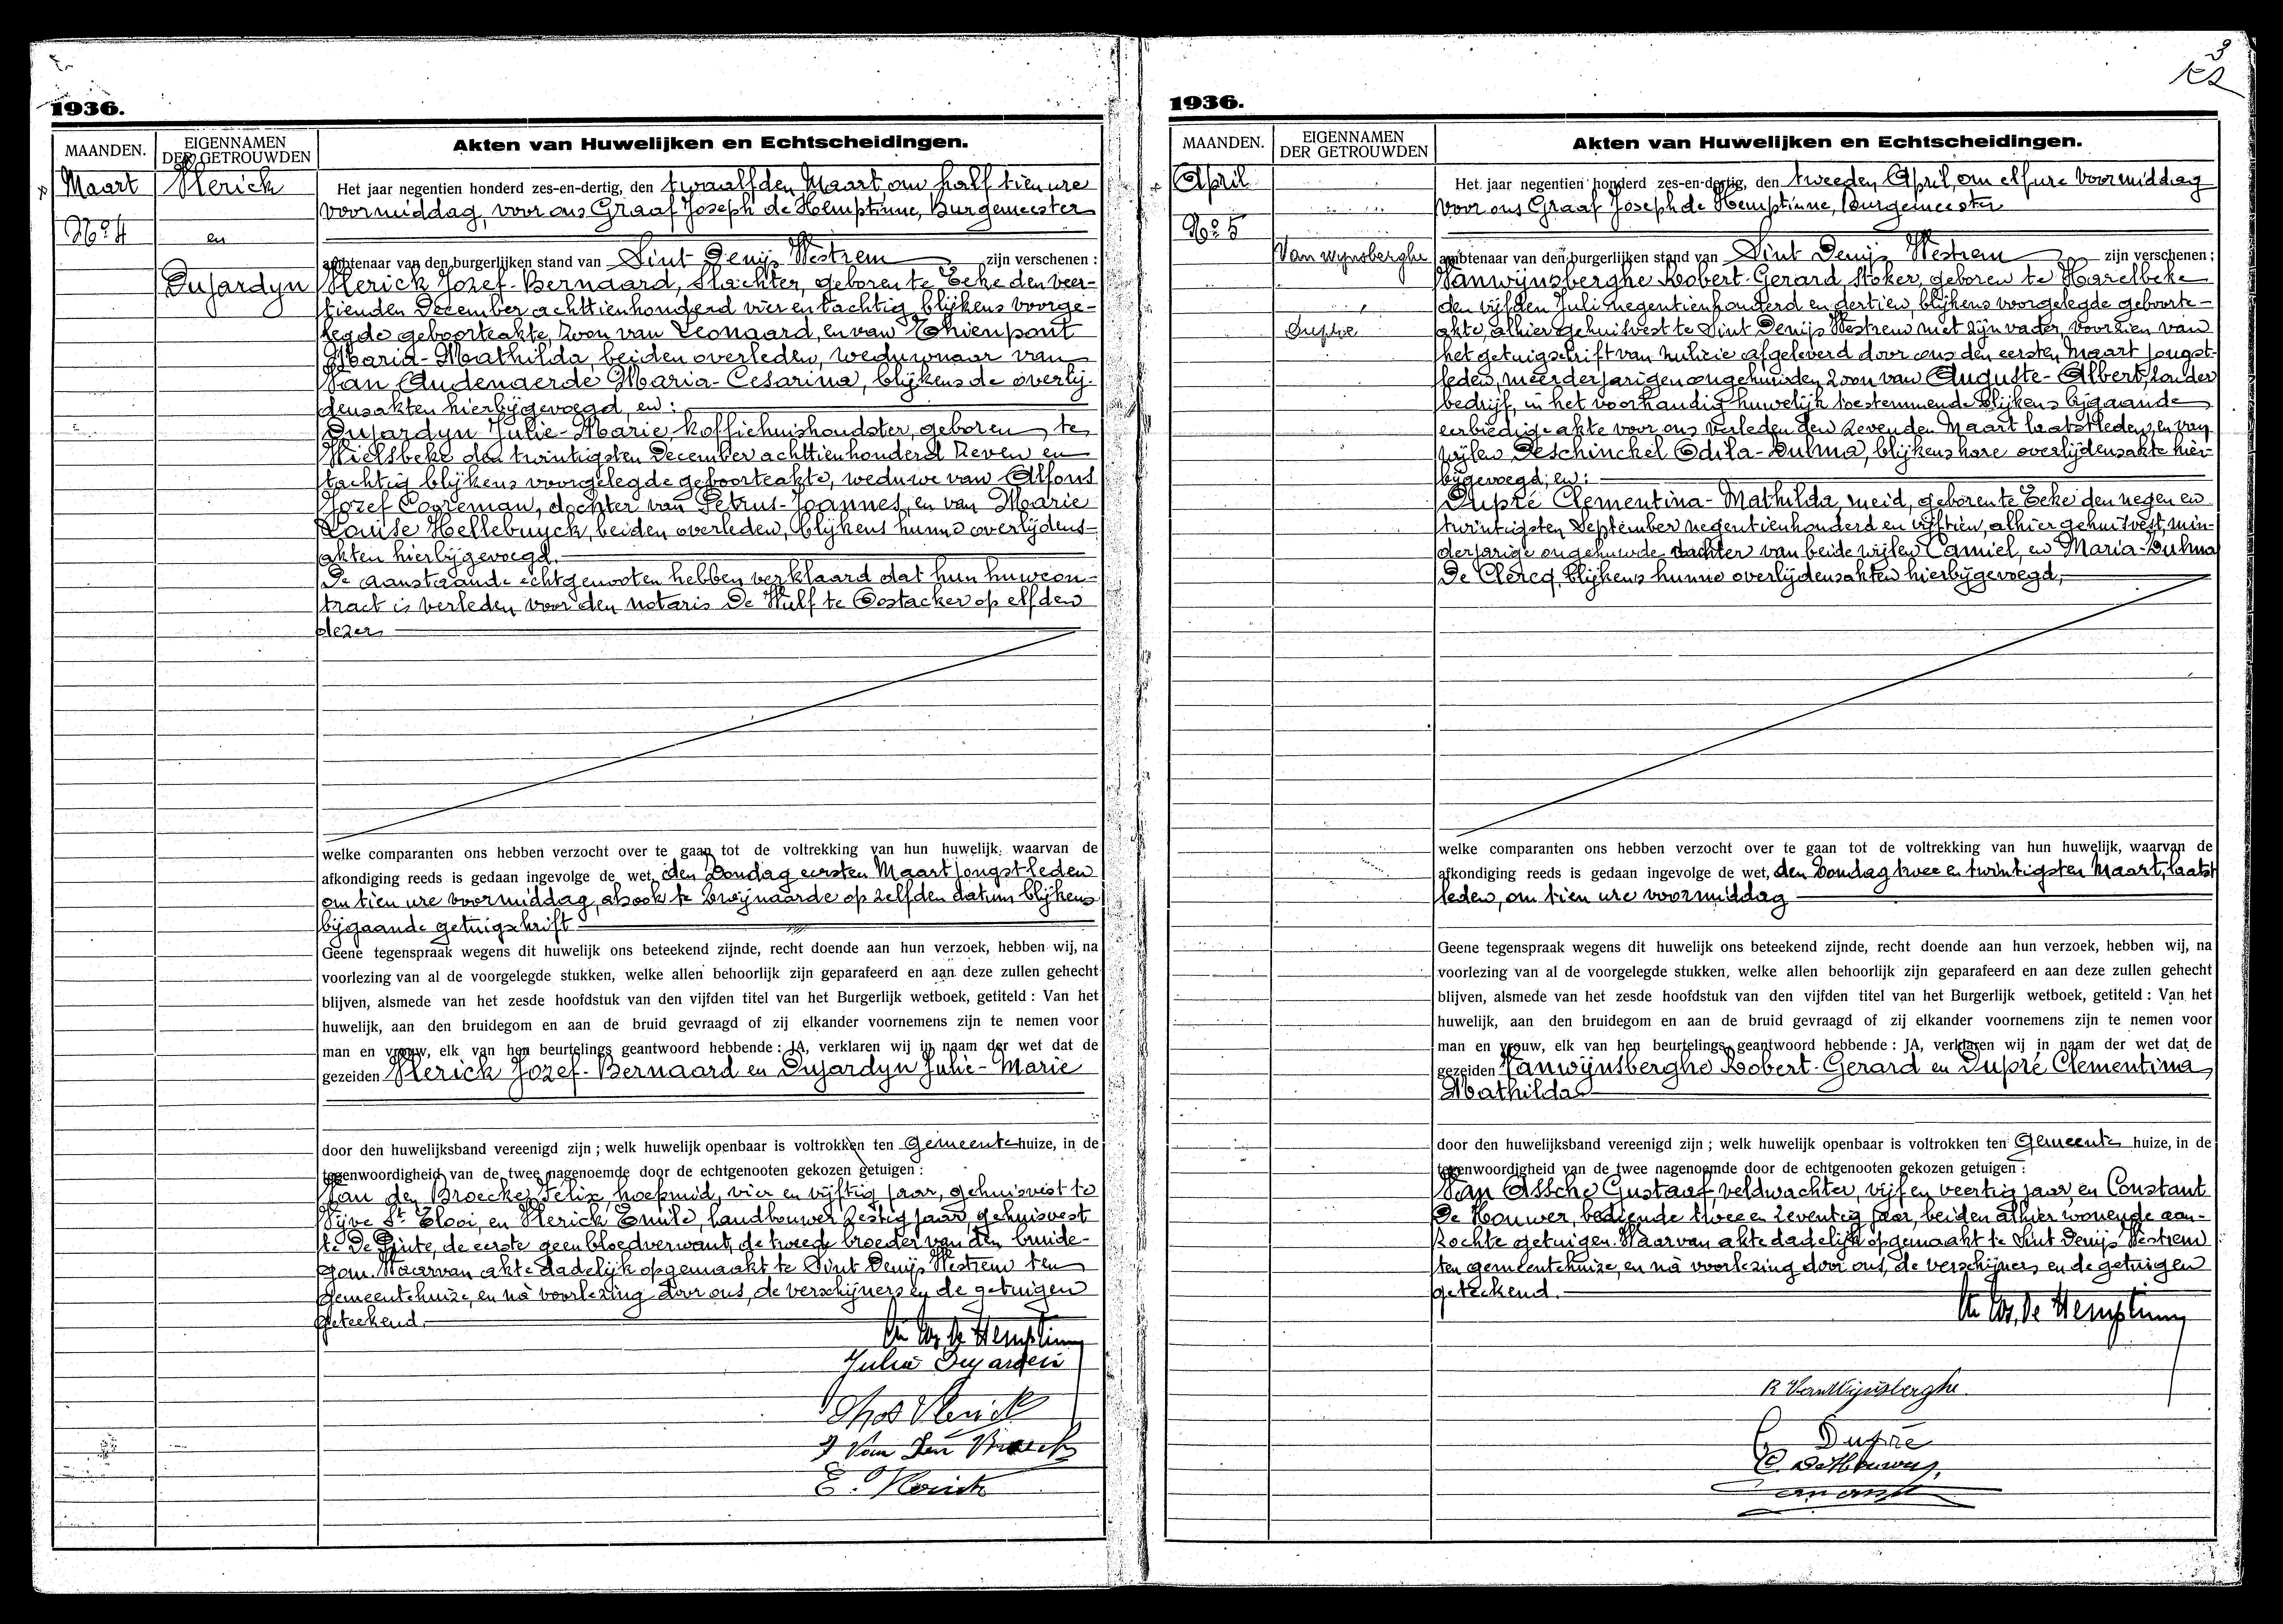 1936.
MAANDEN.
EIGENNAMEN
DER GETROUWDEN
Akten van Huwelijken en Echtscheidingen.
Maart
No 4
Vlerick
en
Dujardyn
Het jaar negentien honderd zes-en-dertig, den twaalfden Maart om half tien ure
voormiddag, voor ons Graaf Joseph de Hemptinne, Burgemeester
ambtenaar van den burgerlijken stand van Sint Denijs Westrem zijn verschenen :
Vlerick Jozef-Bernaard, Slachter, geboren te Eeke den veer-
tienden December achttienhonderd vier en tachtig blijkens voorge-
legde geboorteakte, zoon van Leonaard, en van Thienpont
Maria-Mathilda, beiden overleden, weduwnaar van
Van Audenaerde Maria-Cesarina, blijkens de overlij-
densakten hierbijgevoegd, en :
Dujardyn Julie-Marie, koffiehuishoudster, geboren te
Wielsbeke den twintigsten December achttienhonderd zeven en
tachtig blijkens voorgelegde geboorteakte, weduwe van Alfons
Jozef Cooreman, dochter van Petrus-Joannes, en van Marie
Louise Hellebuyck, beiden overleden, blijkens hunne overlijdens-
akten hierbijgevoegd.
De aanstaande echtgenooten hebben verklaard dat hun huwcon-
tract is verleden voor den notaris De Wulf te Oostacker op elfden
dezer
welke comparanten ons hebben verzocht over te gaan tot de voltrekking van hun huwelijk, waarvan de
afkondiging reeds is gedaan ingevolge de wet, den Zondag eersten Maart jongstleden
om tien ure voormiddag, alsook te Zwijnaarde op zelfden datum blijkens
bijgaande getuigschrift
Geene tegenspraak wegens dit huwelijk ons beteekend zijnde, recht doende aan hun verzoek, hebben wij, na
voorlezing van al de voorgelegde stukken, welke allen behoorlijk zijn geparafeerd en aan deze zullen gehecht
blijven, alsmede van het zesde hoofdstuk van den vijfden titel van het Burgerlijk wetboek, getiteld : Van het
huwelijk, aan den bruidegom en aan de bruid gevraagd of zij elkander voornemens zijn te nemen voor
man en vrouw, elk van hen beurtelings geantwoord hebbende : JA, verklaren wij in naam der wet dat de
gezeiden Vlerick Jozef-Bernaard en Dujardyn Julie-Marie
door den huwelijksband vereenigd zijn ; welk huwelijk openbaar is voltrokken ten Gemeentehuize, in de
tegenwoordigheid van de twee nagenoemde door de echtgenooten gekozen getuigen :
Van den Broecke Felix, hoefsmid, vier en vijftig jaar, gehuisvest te
Vijve St Elooi, en Vlerick Emile, landbouwer zestig jaar, gehuisvest
te De Pinte, de eerste geen bloedverwant, de tweede broeder van den bruide-
gom. Waarvan akte dadelijk opgemaakt te Sint Denijs Westrem ten
gemeentehuize, en nà voorlezing door ons, de verschijners en de getuigen
geteekend.
de Hemptinne
Julia Dujardin
Vlerick
F Van Den Broecke
E. Vlerick
3
1936.
MAANDEN.
EIGENNAMEN
DER GETROUWDEN
Akten van Huwelijken en Echtscheidingen.
April
No 5
Van wynsberghe
Dupré
Het jaar negentien honderd zes-en-dertig, den tweeden April, om elf ure voormiddag
voor ons Graaf Joseph de Hemptinne, Burgemeester
ambtenaar van den burgerlijken stand van Sint Denijs Westrem zijn verschenen ;
Vanwijnsberghe Robert-Gerard, stoker, geboren te Harelbeke
den vijfden Juli negentienhonderd en dertien, blijkens voorgelegde geboorte-
akte, alhier gehuisvest te Sint Denijs Westrem met zijn vader, voorzien van
het getuigschrift van milicie afgeleverd door ons den eersten Maart jongst-
leden, meerderjarigen ongehuwden zoon van Auguste-Albert, zonder
bedrijf, in het voorhandig huwelijk toestemmende blijkens bijgaande
eerbiedige akte voor ons verleden den zevenden Maart laatstleden, en van
wijlen Deschinckel Odila-Zulma, blijkens hare overlijdensakte hier-
bijgevoegd; en :
Dupré Clementina-Mathilda, meid, geboren te Eeke den negen en
twintigsten September negentienhonderd en vijftien, alhier gehuisvest, min-
derjarige ongehuwde dochter van beide wijlen Camiel, en Maria-Zulma
De Clercq, blijkens hunne overlijdensakten hierbijgevoegd,
welke comparanten ons hebben verzocht over te gaan tot de voltrekking van hun huwelijk, waarvan de
afkondiging reeds is gedaan ingevolge de wet, den Zondag twee en twintigsten Maart, laatst
leden, om tien ure voormiddag
Geene tegenspraak wegens dit huwelijk ons beteekend zijnde, recht doende aan hun verzoek, hebben wij, na
voorlezing van al de voorgelegde stukken, welke allen behoorlijk zijn geparafeerd en aan deze zullen gehecht
blijven, alsmede van het zesde hoofdstuk van den vijfden titel van het Burgerlijk wetboek, getiteld : Van het
huwelijk, aan den bruidegom en aan de bruid gevraagd of zij elkander voornemens zijn te nemen voor
man en vrouw, elk van hen beurtelings geantwoord hebbende : JA, verklaren wij in naam der wet dat de
gezeiden Vanwijnsberghe Robert-Gerard en Dupré Clementina
Mathilda
door den huwelijksband vereenigd zijn ; welk huwelijk openbaar is voltrokken ten Gemeente huize, in de
tegenwoordigheid van de twee nagenoemde door de echtgenooten gekozen getuigen :
Van Assche Gustaaf, veldwachter, vijf en veertig jaar, en Constant
De Houwer, bediende twee en zeventig jaar, beiden alhier wonende aan-
zochte getuigen. Waarvan akte dadelijk opgemaakt te Sint Denijs Westrem
ten gemeentehuize, en nà voorlezing door ons, de verschijners en de getuigen
geteekend.
de Hemptinne
R VanWijnsberghe
C Dupré
C. DeHouwer